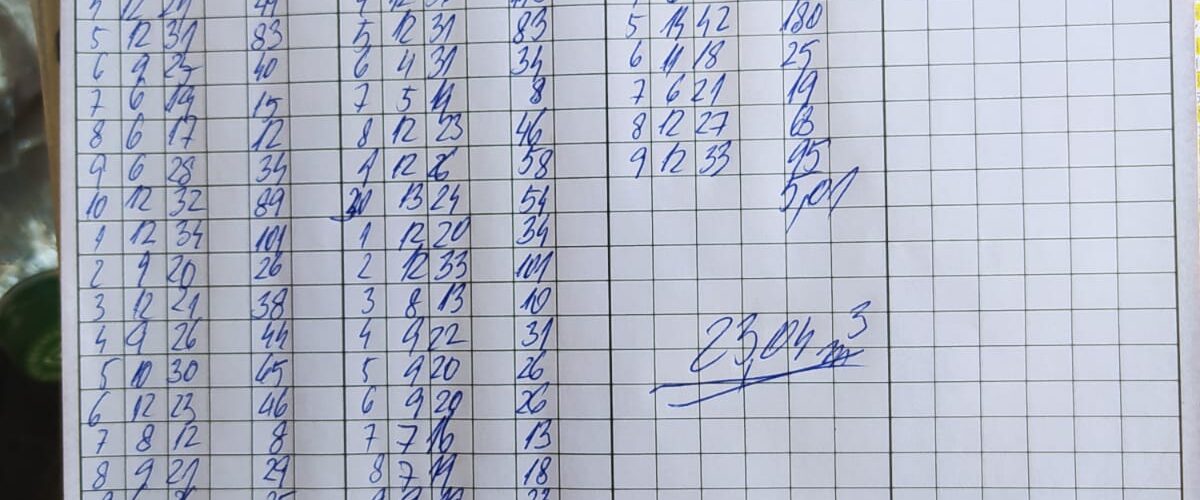 5 12 31 83 5 12 31 83 5 14 42 180
6 9 25 40 6 4 31 34 6 11 18 25
7 6 19 15 7 5 14 8 7 6 21 19
8 6 17 12 8 12 23 46 8 12 27 63
9 6 28 34 9 12 26 58 9 12 33 95
10 12 32 89 13 24 54 5,01
1 12 34 101 1 12 20 34
2 9 20 26 2 12 33 101
3 12 21 38 3 8 13 10
4 9 26 44 4 9 22 31 23,04 m³
5 10 30 65 5 9 20 26
6 12 23 46 6 9 20 26
7 8 12 8 7 7 16 13
8 9 21 29 8 7 19 18